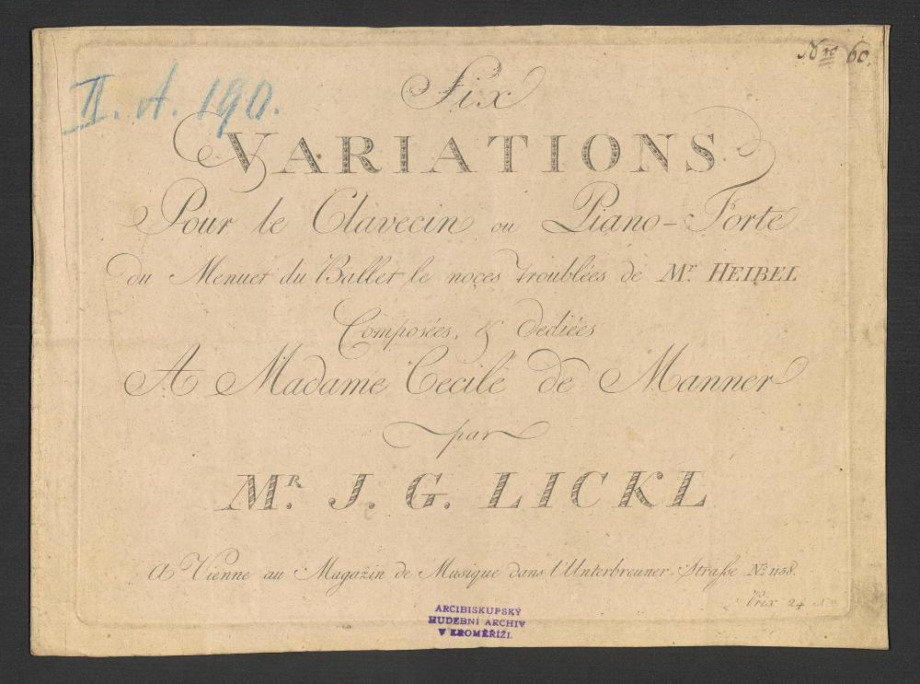 Nro 60.
II. A. 190.
Six
VARIATIONS
Pour le Clavecin ou Piano-Forte
du Menuet du Ballet le noçes troublées de Mr. HEIBEL
Composées, & dediées
A Madame Cecile de Manner
par
MR. J. G. LICKL
A Vienne au Magazin de Musique dans l'Unterbreuner-Strasse No. 1158.
Prix 24
ARCIBISKUPSKÝ
HUDEBNÍ ARCHIV
V KROMĚŘÍŽI.